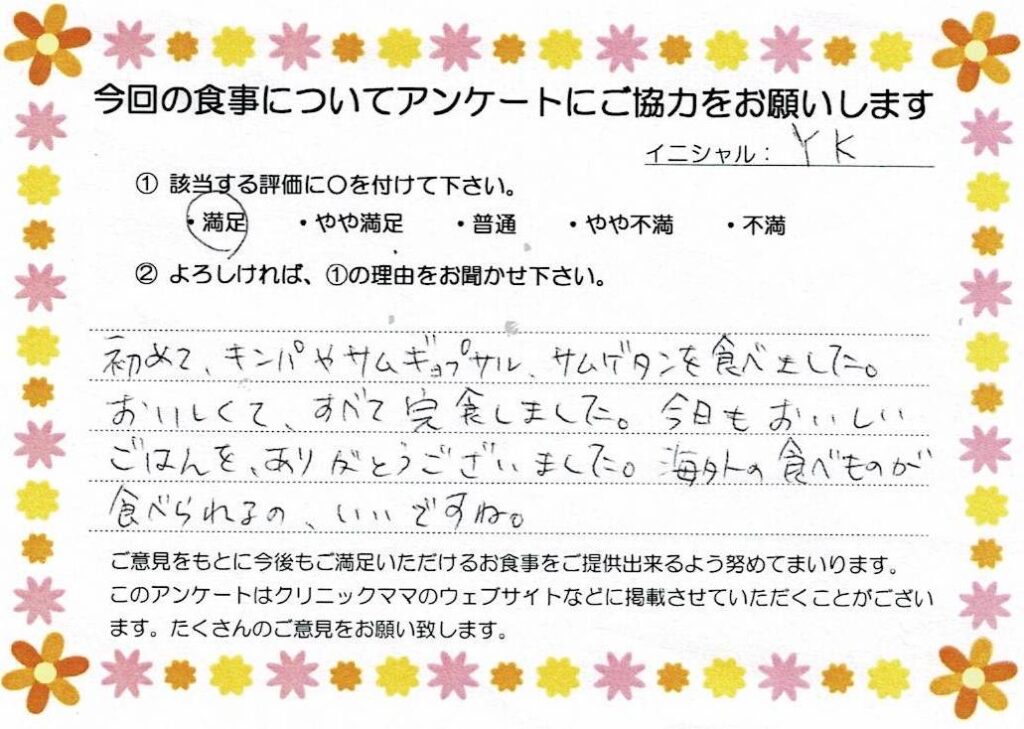 今回の食事についてアンケートにご協力をお願いします
イニシャル： YK
① 該当する評価に〇を付けて下さい。
・満足 ・やや満足 ・普通 ・やや不満 ・不満
② よろしければ、①の理由をお聞かせ下さい。
初めて、キンパやサムギョプサル、サムゲタンを食べました。
おいしくて、すべて完食しました。今日もおいしい
ごはんを、ありがとうございました。海外の食べものが
食べられるの、いいですね。
ご意見をもとに今後もご満足いただけるお食事をご提供出来るよう努めてまいります。
このアンケートはクリニックママのウェブサイトなどに掲載させていただくことがござい
ます。たくさんのご意見をお願い致します。